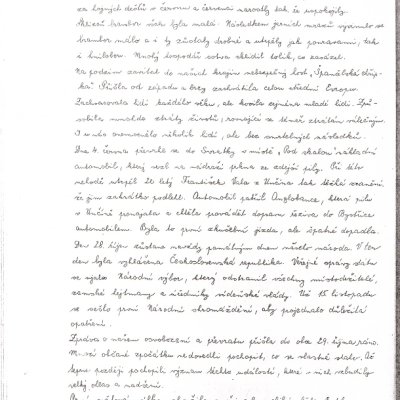 za hojných dešťů v červnu a červenci narostly tak, že uspokojily.
Sklizeň brambor však byla malá. Následkem jarních mrazů vyrostlo se
brambor málo a i ty zůstaly drobné a utrpěly jak ponravami, tak
i hnilobou. Mnohý hospodář sotva sklidil tolik, co zasázel.
Na podzim zavítal do našich krajin nebezpečný host „Španělská chřip-
ka". Přišla od západu a brzy zachvátila celou střední Evropu.
Zachvacovala lidi každého věku, ale kosila zejména mladé lidi. Způ-
sobila mnoho ztráty životů, rovnající se téměř ztrátám válečným.
I u nás onemocnělo několik lidí, ale bez smrtelných následků.
Dne 4. června přivezlo se do v místě „Pod skalou" nákladní
automobil, který vezl na nádraží prkna ze zdejší pily. Při této
nehodě utrpěl 21 letý František Vala z Unčína tak těžká zranění,
že jim zakrátko podlehl. Automobil patřil Anglobance, která pilu
v Unčíně pronajala a chtěla provádět dopravu řeziva do Bystřice
automobilem. Byla to první zkušební jízda, ale špatně dopadla.
Den 28. říjen zůstane navždy památným dnem našeho národa. V ten
den byla vyhlášena Československá republika. Veřejné správy státu
se ujalo Národní výbor, který odstranil všechny místodržitele,
zemské hejtmany a úředníky vídeňské vlády. Už 15. listopadu
se sešlo první Národní shromáždění, aby projednalo důležitá
opatření.
Zpráva o našem osvobození a převratu přišla do obce 29. října ráno.
Mnozí občané zpočátku nedovedli pochopit, co se vlastně stalo. Až
teprve později pochopili význam těchto událostí, které v nich vzbudily
velký ohlas a nadšení.